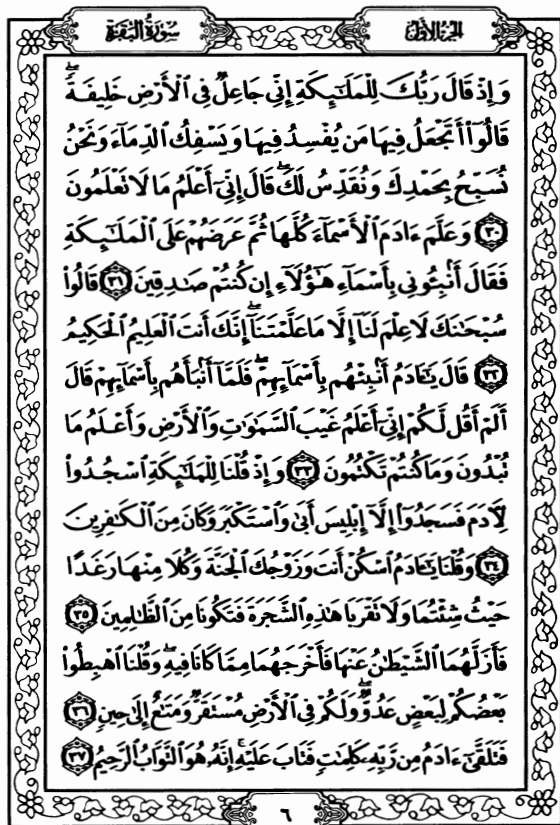 الجزء الأول
سورة البقرة
وَإِذْ قَالَ رَبُّكَ لِلْمَلَٰٓئِكَةِ إِنِّي جَاعِلٌ فِي الْأَرْضِ خَلِيفَةً ۖ
قَالُوٓا۟ أَتَجْعَلُ فِيهَا مَن يُفْسِدُ فِيهَا وَيَسْفِكُ الدِّمَآءَ وَنَحْنُ
نُسَبِّحُ بِحَمْدِكَ وَنُقَدِّسُ لَكَ ۖ قَالَ إِنِّيٓ أَعْلَمُ مَا لَا تَعْلَمُونَ
٣٠ وَعَلَّمَ ءَادَمَ الْأَسْمَآءَ كُلَّهَا ثُمَّ عَرَضَهُمْ عَلَى الْمَلَٰٓئِكَةِ
فَقَالَ أَنۢبِـُٔونِي بِأَسْمَآءِ هَٰٓؤُلَآءِ إِن كُنتُمْ صَٰدِقِينَ ٣١ قَالُوا۟
سُبْحَٰنَكَ لَا عِلْمَ لَنَآ إِلَّا مَا عَلَّمْتَنَآ ۖ إِنَّكَ أَنتَ الْعَلِيمُ الْحَكِيمُ
٣٢ قَالَ يَٰٓـَٔادَمُ أَنۢبِئْهُم بِأَسْمَآئِهِمْ ۖ فَلَمَّآ أَنۢبَأَهُم بِأَسْمَآئِهِمْ قَالَ
أَلَمْ أَقُل لَّكُمْ إِنِّيٓ أَعْلَمُ غَيْبَ السَّمَٰوَٰتِ وَالْأَرْضِ وَأَعْلَمُ مَا
تُبْدُونَ وَمَا كُنتُمْ تَكْتُمُونَ ٣٣ وَإِذْ قُلْنَا لِلْمَلَٰٓئِكَةِ اسْجُدُوا۟
لِـَٔادَمَ فَسَجَدُوٓا۟ إِلَّآ إِبْلِيسَ أَبَىٰ وَاسْتَكْبَرَ وَكَانَ مِنَ الْكَٰفِرِينَ
٣٤ وَقُلْنَا يَٰٓـَٔادَمُ اسْكُنْ أَنتَ وَزَوْجُكَ الْجَنَّةَ وَكُلَا مِنْهَا رَغَدًا
حَيْثُ شِئْتُمَا وَلَا تَقْرَبَا هَٰذِهِ الشَّجَرَةَ فَتَكُونَا مِنَ الظَّٰلِمِينَ ٣٥
فَأَزَلَّهُمَا الشَّيْطَٰنُ عَنْهَا فَأَخْرَجَهُمَا مِمَّا كَانَا فِيهِ ۖ وَقُلْنَا اهْبِطُوا۟
بَعْضُكُمْ لِبَعْضٍ عَدُوٌّ ۖ وَلَكُمْ فِي الْأَرْضِ مُسْتَقَرٌّ وَمَتَٰعٌ إِلَىٰ حِينٍ ٣٦
فَتَلَقَّىٰٓ ءَادَمُ مِن رَّبِّهِۦ كَلِمَٰتٍ فَتَابَ عَلَيْهِ ۚ إِنَّهُۥ هُوَ التَّوَّابُ الرَّحِيمُ ٣٧
٦